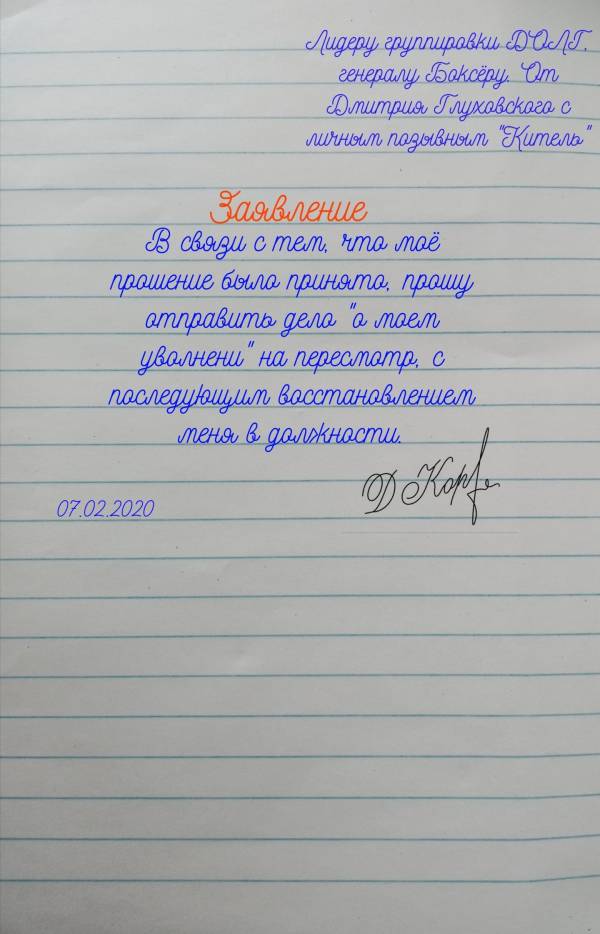 Лидеру группировки ДОЛГ,
генералу Боксёру. От
Дмитрия Глуховского с
личным позывным "Китель"
Заявление
В связи с тем, что моё
прошение было принято, прошу
отправить дело "о моем
уволнени" на пересмотр, с
последующим восстановлением
меня в должности.
07.02.2020